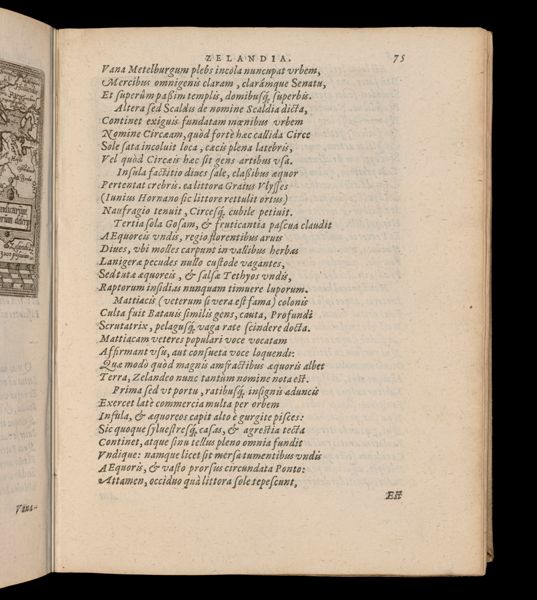 ZELANDIA. 75
Vana Metelburgum plebs incola nuncupat vrbem,
Mercibus omnigenis claram, clarámque Senatu,
Et superûm paßim templis, domibusq́ superbis.
Altera sed Scaldis de nomine Scaldia dicta,
Continet exiguis fundatam mœnibus vrbem
Nomine Circæam, quòd fortè hæc callida Circe
Sole sata incoluit loca, cæcis plena latebris,
Vel quòd Circæis hæc sit gens artibus vsa.
Insula factitio diues sale, claßibus æquor
Pertentat crebris. ea littora Graius Vlysses
(Iunius Hornano sic littore rettulit ortus)
Naufragio tenuit, Circesq́ cubile petiuit.
Tertia sola Gosam, & fruticantia pascua claudit
AEquoreis vndis, regio florentibus aruis
Diues, vbi molles carpunt in vallibus herbas
Lanigeræ pecudes nullo custode vagantes,
Sed tutæ æquoreis, & salsæ Tethyos vndis,
Raptorum insidias nunquam timuere luporum.
Mattiacis (veterum si vera est fama) colonis
Culta fuit Batauis similis gens, cauta, Profundi
Scrutatrix, pelagusq́ vaga rate scindere docta.
Mattiacam veteres populari voce vocatam
Affirmant vsu, aut consueta voce loquendi:
Quæ modò quòd magnis amfractibus æquoris albet
Terra, Zelandeo nunc tantùm nomine nota est.
Prima sed vt portu, ratibusq́ insignis aduncis
Exercet latè commercia multa per orbem
Insula, & æquoreos capit alto è gurgite pisces:
Sic quoque syluestresq́ casas, & agrestia tecta
Continet, atque sinu tellus pleno omnia fundit
Vndique: namque licet sit mersa tumentibus vndis
AEquoris, & vasto prorsus circundata Ponto:
Attamen, occiduo quà littora sole tepescunt,
Est
Vana-